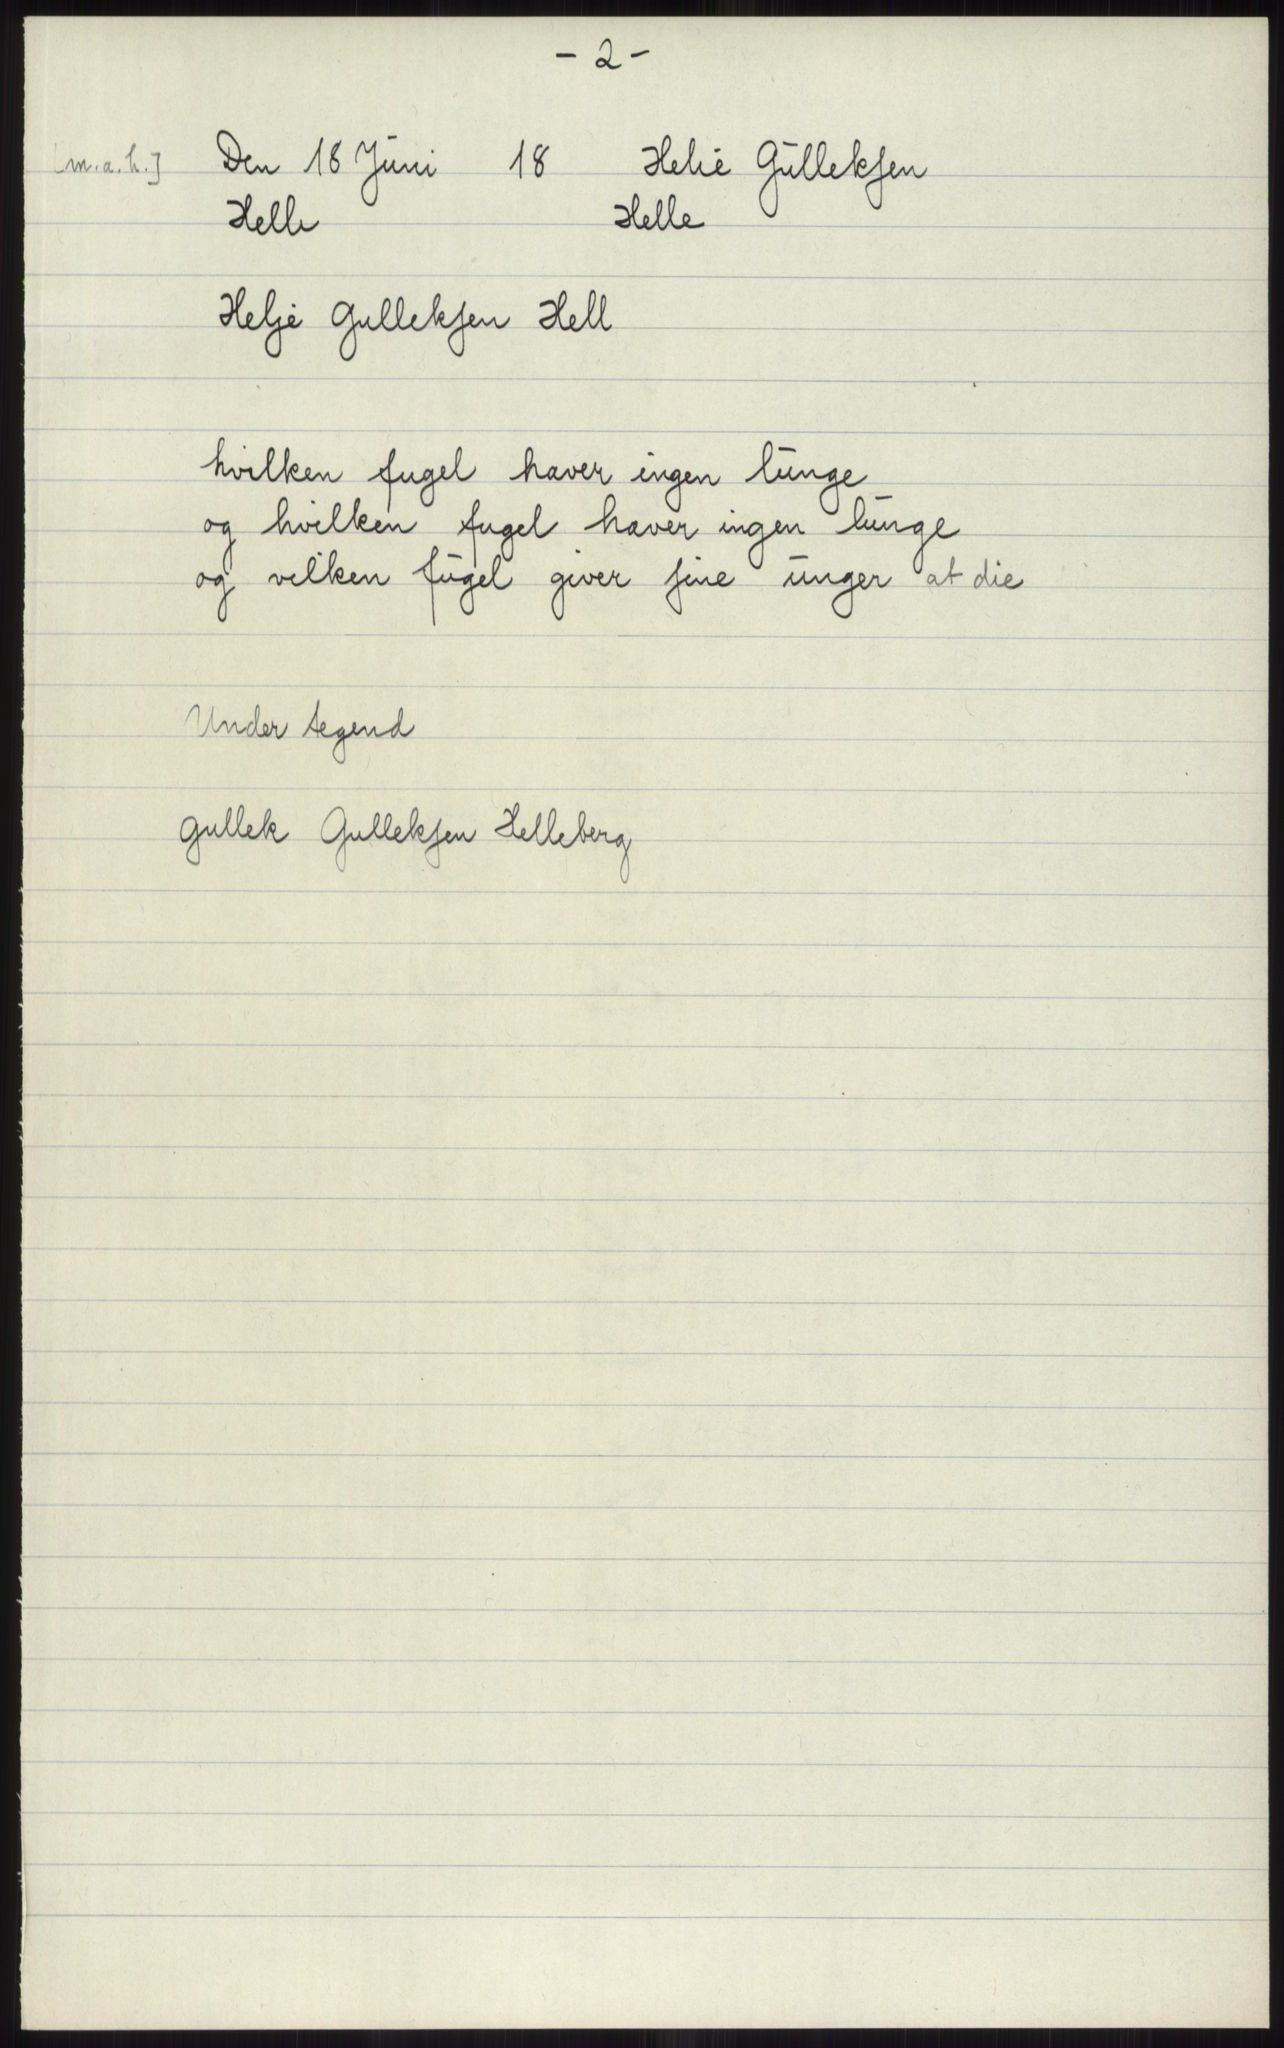 - 2 -
[m.a.h.] Den 18 Juni 18 Helie Gullekſen
Helle Helle
Helje Gullekſen Hell
hvilken fugel haver ingen lunge
og hvilken fugel haver ingen lunge
og vilken fugel giver ſine unger at die
Under tegend
gullek Gullekſen Helleberg